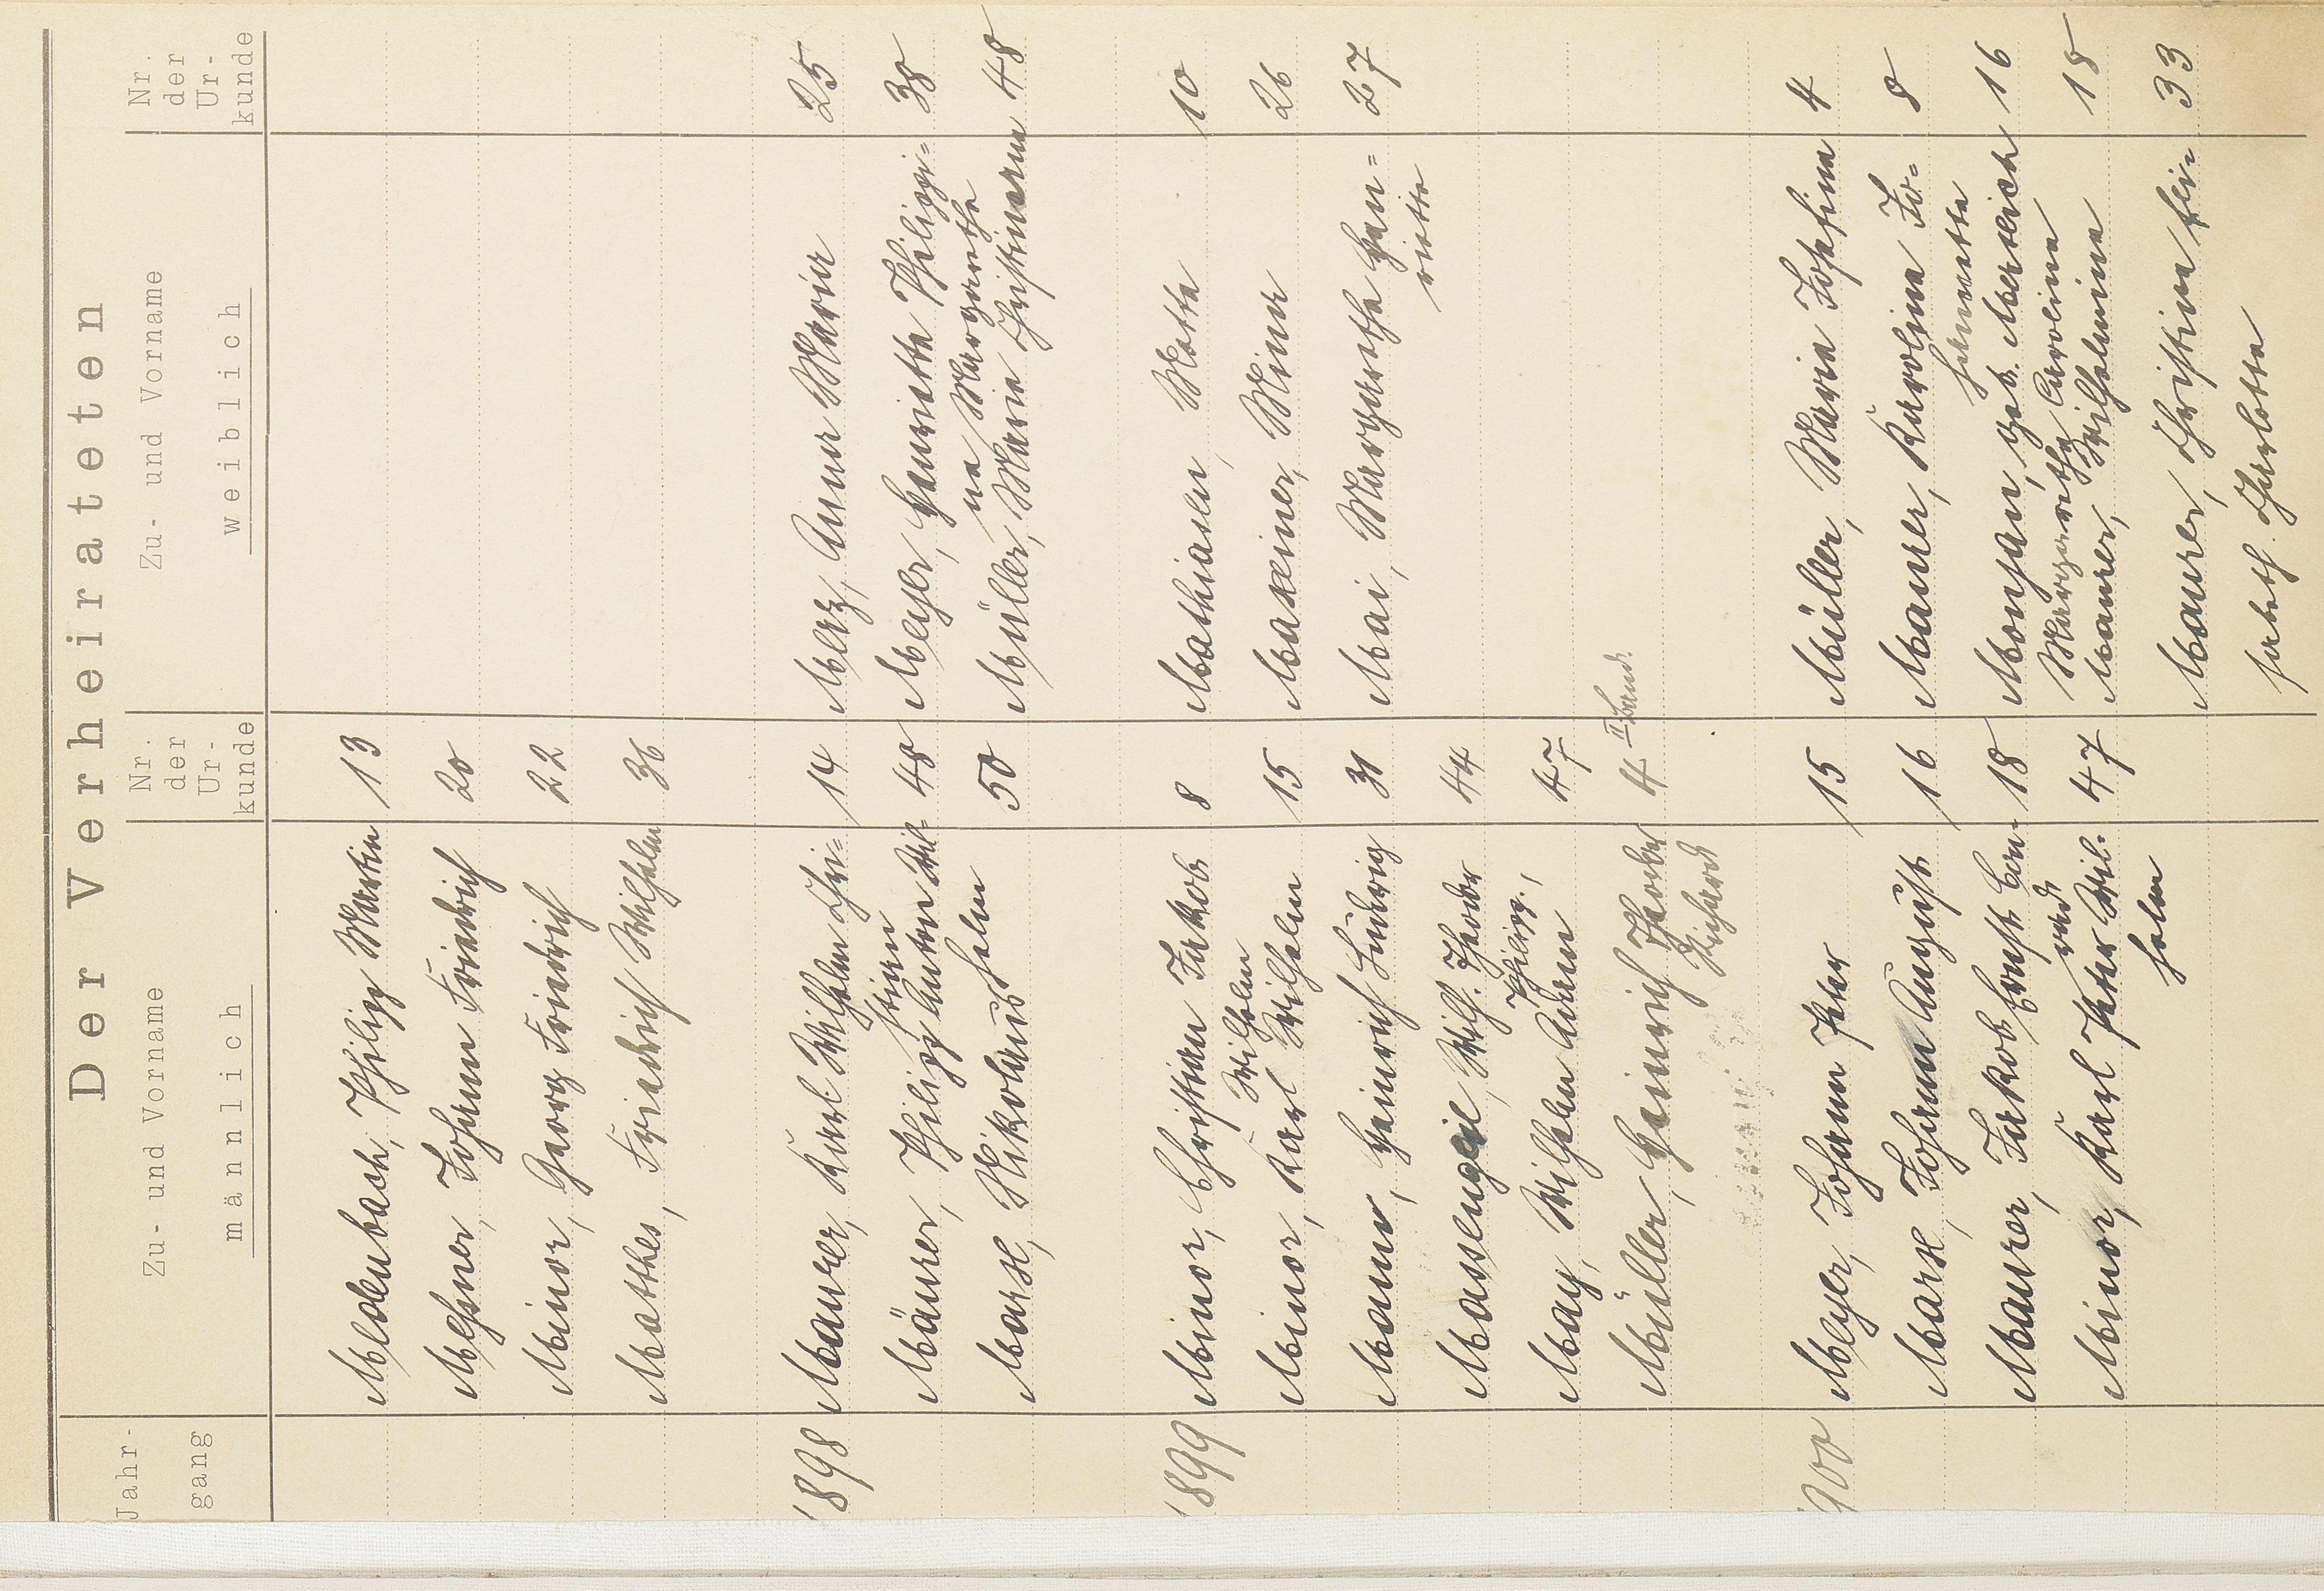 Der Verheirateten
Jahr-
gang
Zu- und Vorname
männlich
Nr.
der
Ur-
kunde
Zu- und Vorname
weiblich
Nr.
der
Ur-
kunde
Medenbach, Philipp Martin 13
Meßner, Johann Friedrich 20
Minor, Georg Friedrich 22
Matthes, Friedrich Wilhelm 36
1898 Maurer, Karl Wilhelm Chri= 14 Merz, Anna Maria 25
stian
Mäurer, Philipp Anton Wil= 48 Meyer, Henriette Philippi= 38
helm
na Margarethe
Marx, Nikolaus 50 Müller, Maria Christiana 48
1899 Minor, Christian Jakob 8 Mathiasln, Meta 10
Wilhelm
Minor, Karl Wilhelm 15 Maxeiner, Mina 26
Mann, Heinrich Ludwig 31 Mai, Margarethe Hen= 27
riette
Massengeil, Wilh. Theodor 44
Philipp,
May, Wilhelm Adam 47
Müller, Heinrich Theodor 4 II Band.
Richard
1900 Meyer, Johann Peter 15 Müller, Maria Josefine 4
Marx, Johann August 16 Maurer, Karoline Jo= 8
hannette
Maurer, Jakob Ernst Con- 18 Monjau, geb. Merteich 16
rad
Margarethe Caroline
Minor, Karl Peter Wil- 47 Maurer, Wilhelmine 18
helm
Maurer, Christine Eli- 33
sabeth Charlotte